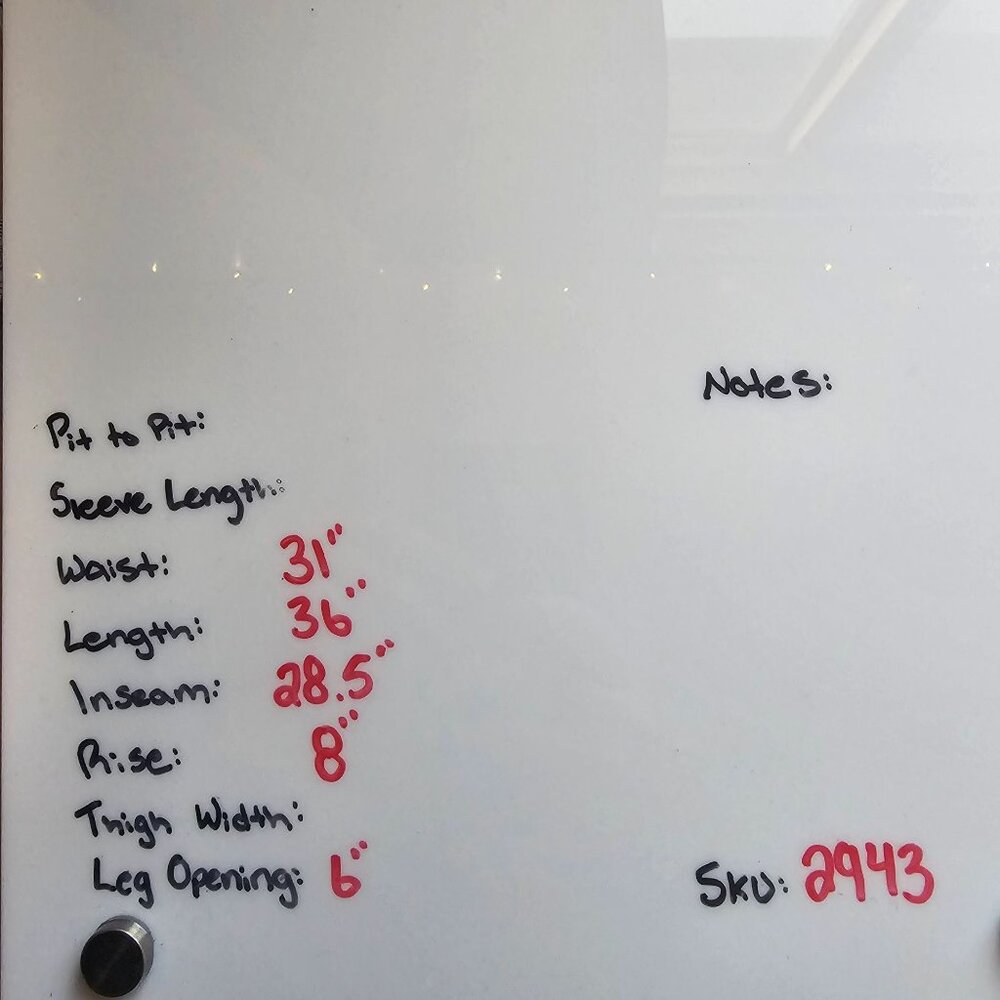 Notes:
Pit to Pit:
Sleeve Length:
Waist: 31"
Length: 36"
Inseam: 28.5"
Rise: 8"
Thigh Width:
Leg Opening: 6"
SKU: 2943